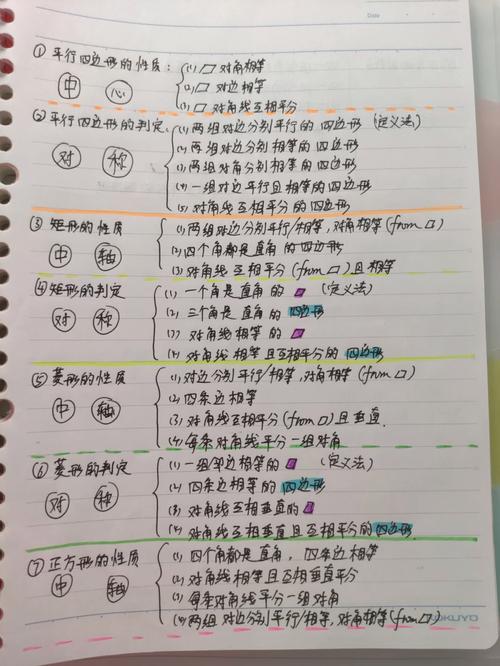 Date
① 平行四边形的性质：
(1) ▱ 对角相等
中 心
(2) ▱ 对边相等
(3) ▱ 对角线互相平分
② 平行四边形的判定
(1) 两组对边分别平行的四边形 (定义法)
(2) 两组对边分别相等的四边形
对 称
(3) 两组对角分别相等的四边形
(4) 一组对边平行且相等的四边形
(5) 对角线互相平分的四边形
③ 矩形的性质
(1) 两组对边分别平行/相等，对角相等 (from ▱)
中 轴
(2) 四个角都是直角的四边形
(3) 对角线互相平分 (from ▱) 且相等
④ 矩形的判定
(1) 一个角是直角的 ▱ (定义法)
对 称
(2) 三个角是直角的 四边形
(3) 对角线相等的 ▱
(4) 对角线相等且互相平分的 四边形
⑤ 菱形的性质
(1) 对边分别平行/相等，对角相等 (from ▱)
中 轴
(2) 四条边相等
(3) 对角线互相平分 (from ▱) 且垂直.
(4) 每条对角线平分一组对角
⑥ 菱形的判定
(1) 一组邻边相等的 ▱ (定义法)
对 称
(2) 四条边相等的 四边形
(3) 对角线互相垂直的 ▱
(4) 对角线互相垂直且互相平分的 四边形.
⑦ 正方形的性质
(1) 四个角都是直角，四条边相等
中 轴
(2) 对角线相等且互相垂直平分
(3) 每条对角线平分一组对角
(4) 两组对边分别平行/相等，对角相等 (from ▱)
KOKUYO